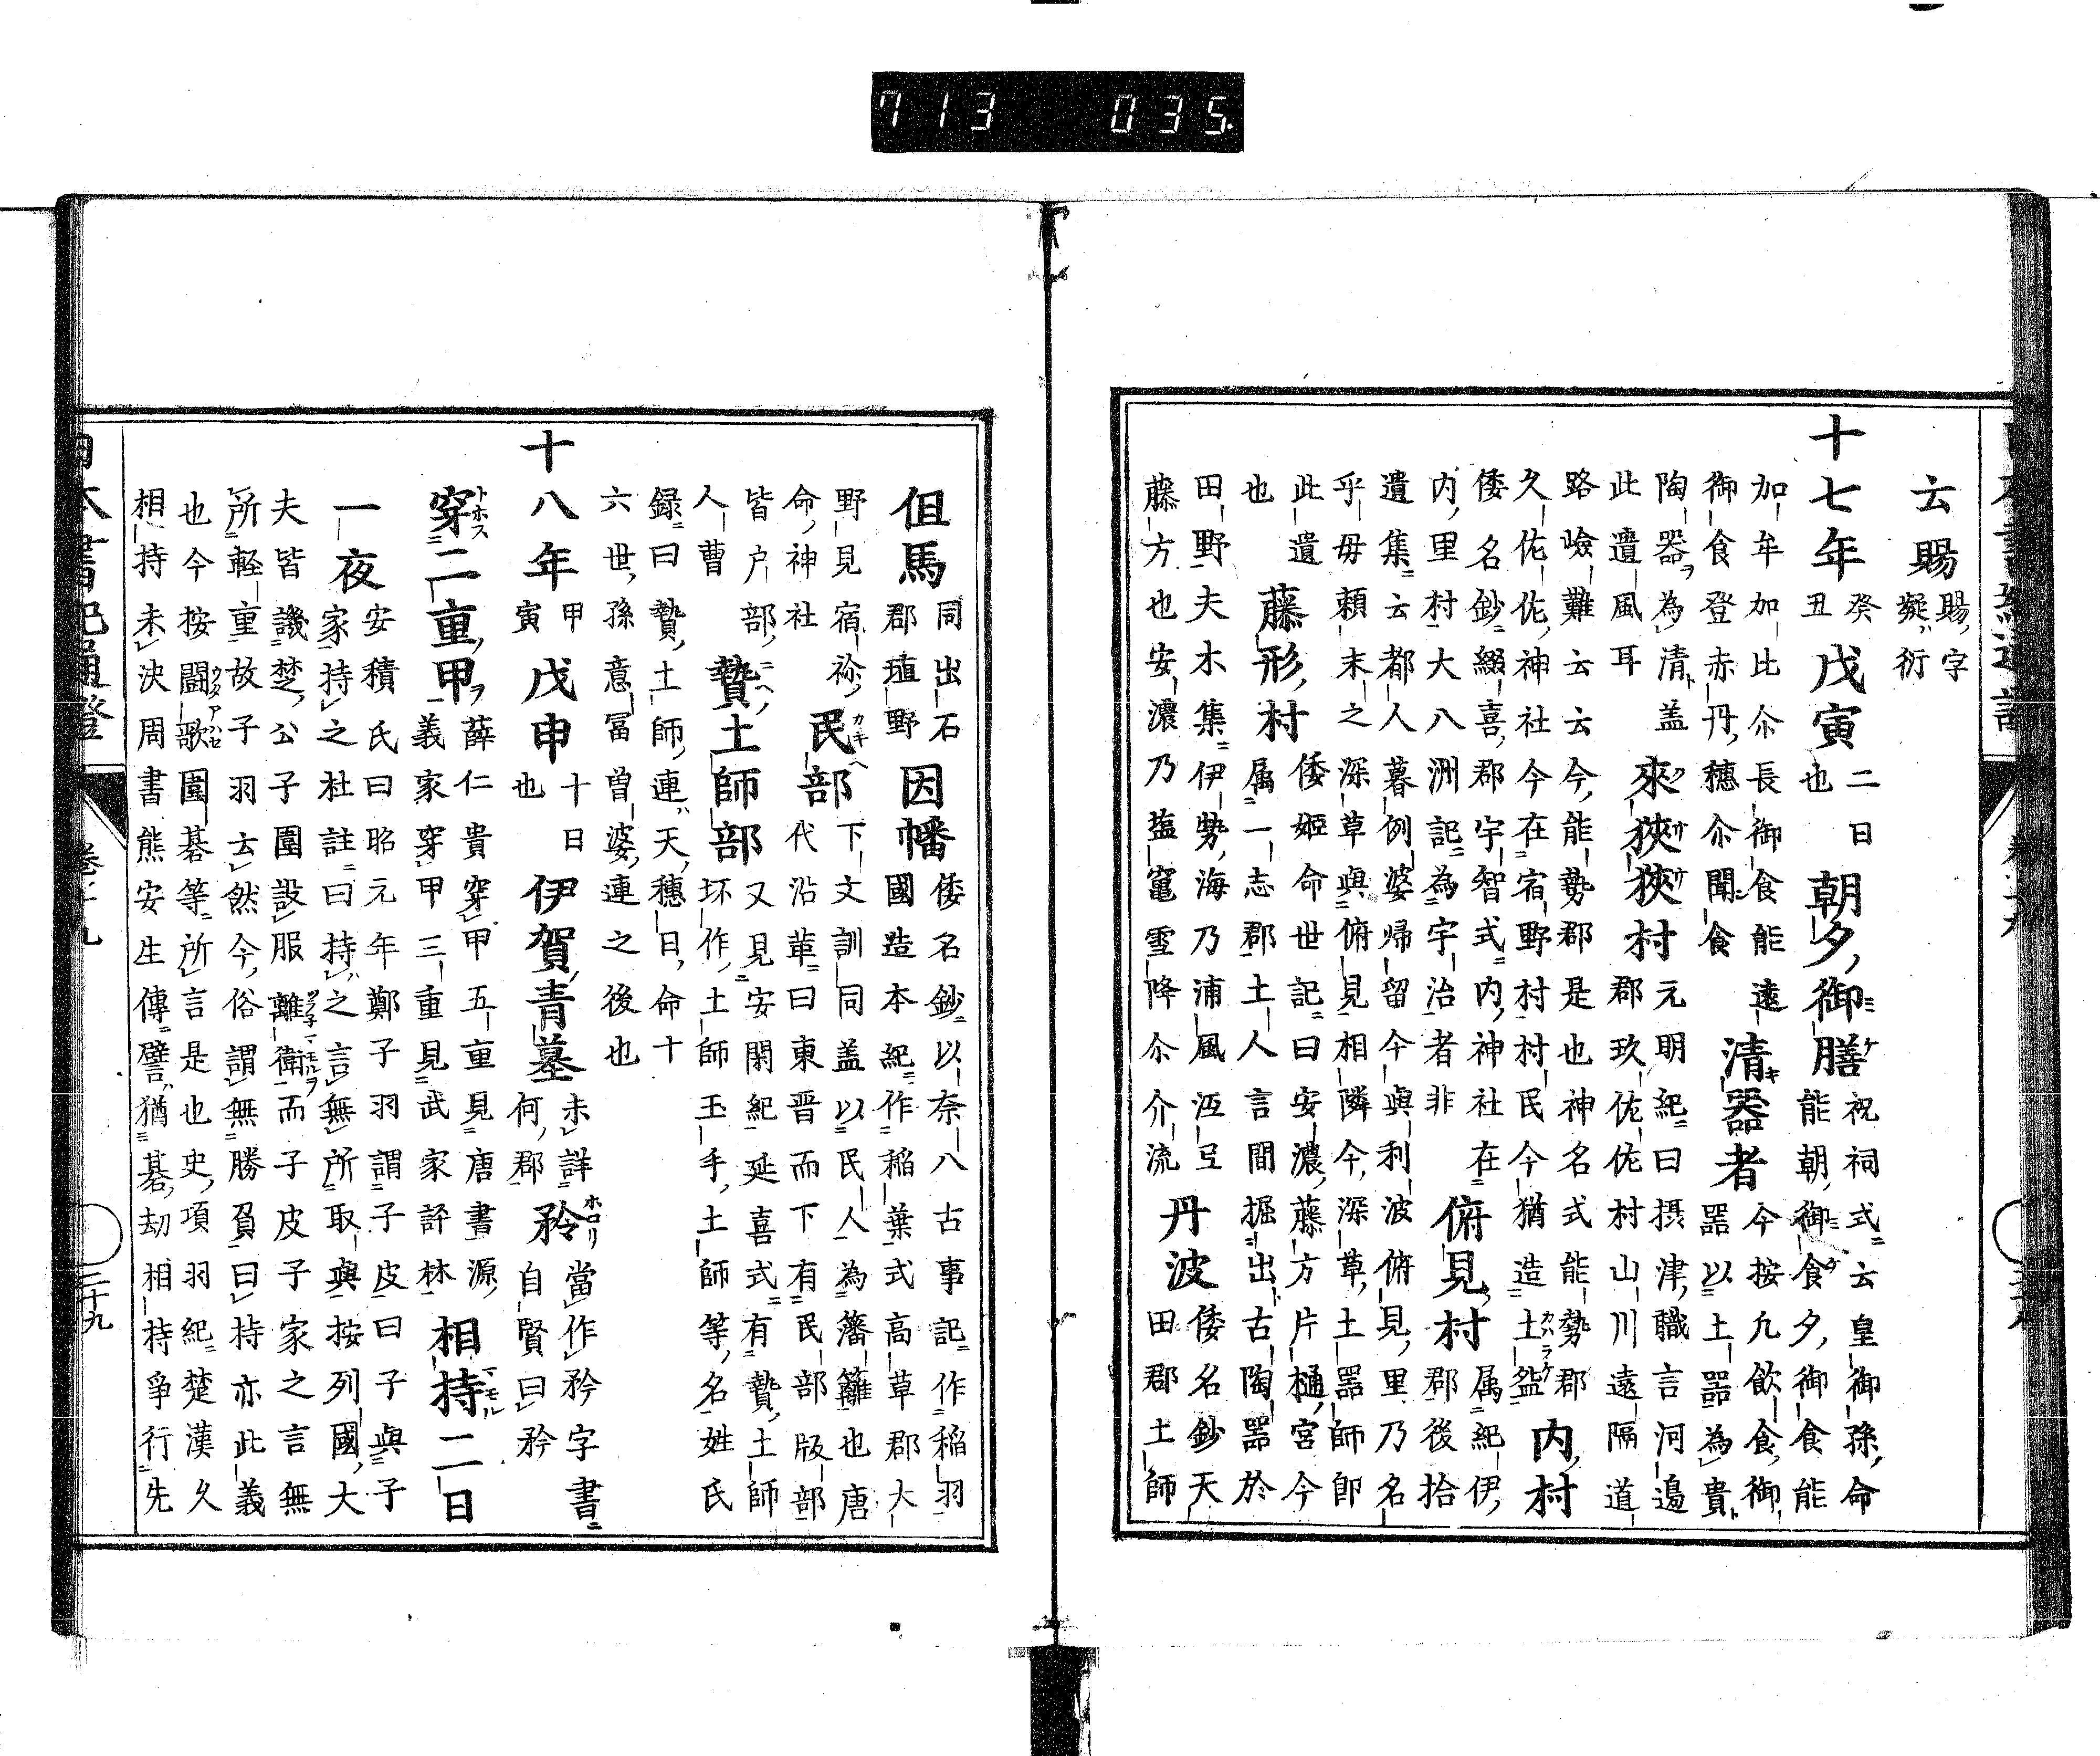 713 035
云賜賜字
疑衍
十七年癸丑戊寅二日也朝夕御膳祝詞式云皇御孫命
能朝御食夕御食能
加牟加比尒長御食能遠
御食登赤丹穗尒聞食
清器者今按凢飲食御
器以土器為貴
陶器為清盖
此遺風耳
來狹狹村元明紀曰摂津職言河邊
郡玖佐佐村山川遠隔道
路嶮難云云今能勢郡是也神名式能勢郡
久佐佐神社今在宿野村村民今猶造土盌
内村
倭名鈔綴喜郡宇智式内神社在
内里村大八洲記為宇治者非
俯見村属紀伊
郡後拾
遺集云都人暮例婆歸留今與利波俯見里乃名
乎毋頼末之深草與俯見相隣今深草土器師即
此遺
也
藤形村倭姫命世記曰安濃藤方片樋宮今
属一志郡土人言間掘出古陶器於
田野夫木集伊勢海乃浦風沍弖
藤方也安濃乃塩竃雪降尒介流
丹波倭名鈔天
田郡土師
但馬同出石
郡埴野
因幡倭名鈔以奈八古事記作稲羽
國造本紀作稲葉式高草郡大
野見宿祢
命神社
民部下文訓同盖以民人為藩籬也唐
代沿革曰東晋而下有民部版部
皆户部
贄土師部又見安閑紀延喜式有贄土師
坏作土師玉手土師等名姓氏
人曹
録曰贄土師連天穗日命十
六世孫意冨曽婆連之後也
十八年甲寅戊申十日也伊賀青墓未詳
何郡
矜當作矜字書
自賢曰矜
穿二重甲薛仁貴穿甲五重見唐書源
義家穿甲三重見武家評林
相持二日
一夜安積氏曰昭元年鄭子羽謂子皮曰子與子
家持之杜註曰持之言無所取與按列國大
夫皆譏楚公子圍設服離衛而子皮子家之言無
所軽重故子羽去然今俗謂無勝負曰持亦此義
也今按闘歌圍碁等所言是也史項羽紀楚漢久
相持未決周書熊安生傳譬猶碁劫相持爭行先
日本書紀通證
三十九